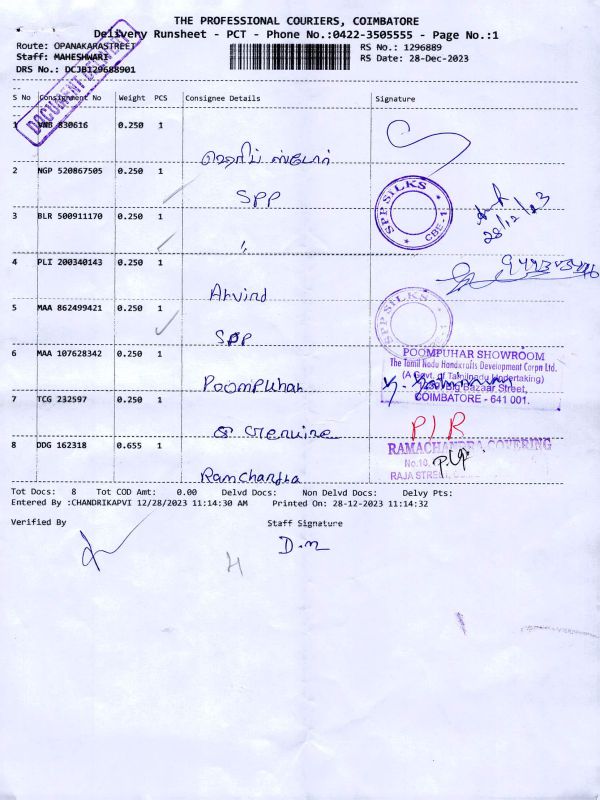 THE PROFESSIONAL COURIERS, COIMBATORE
Delivery Runsheet - PCT - Phone No.:0422-3505555 - Page No.:1
Route: OPANAKARASTREET
RS No.: 1296889
Staff: MAHESHWARI
RS Date: 28-Dec-2023
DRS No.: DCJB129688901
DOCUMENT DELIVERY
S No Consignment No Weight PCS Consignee Details Signature
1 VNB 830616 0.250 1
2 NGP 520867505 0.250 1
SPP
SPP SILKS
CBE-1
28/12/23
3 BLR 500911170 0.250 1
"
4 PLI 200340143 0.250 1
Arvind
5 MAA 862499421 0.250 1
SPP
SPP SILKS
6 MAA 107628342 0.250 1
Poompuhar
POOMPUHAR SHOWROOM
The Tamil Nadu Handicrafts Development Corpn Ltd.
(A Govt. of Tamilnadu Undertaking)
Big Bazaar Street,
COIMBATORE - 641 001.
7 TCG 232597 0.250 1
P/R
8 DDG 162318 0.655 1
Ramchandra
RAMACHANDRA COVERING
No.10,
RAJA STREET,
Tot Docs: 8 Tot COD Amt: 0.00 Delvd Docs: Non Delvd Docs: Delvy Pts:
Entered By :CHANDRIKAPVI 12/28/2023 11:14:30 AM Printed On: 28-12-2023 11:14:32
Verified By Staff Signature
D.m